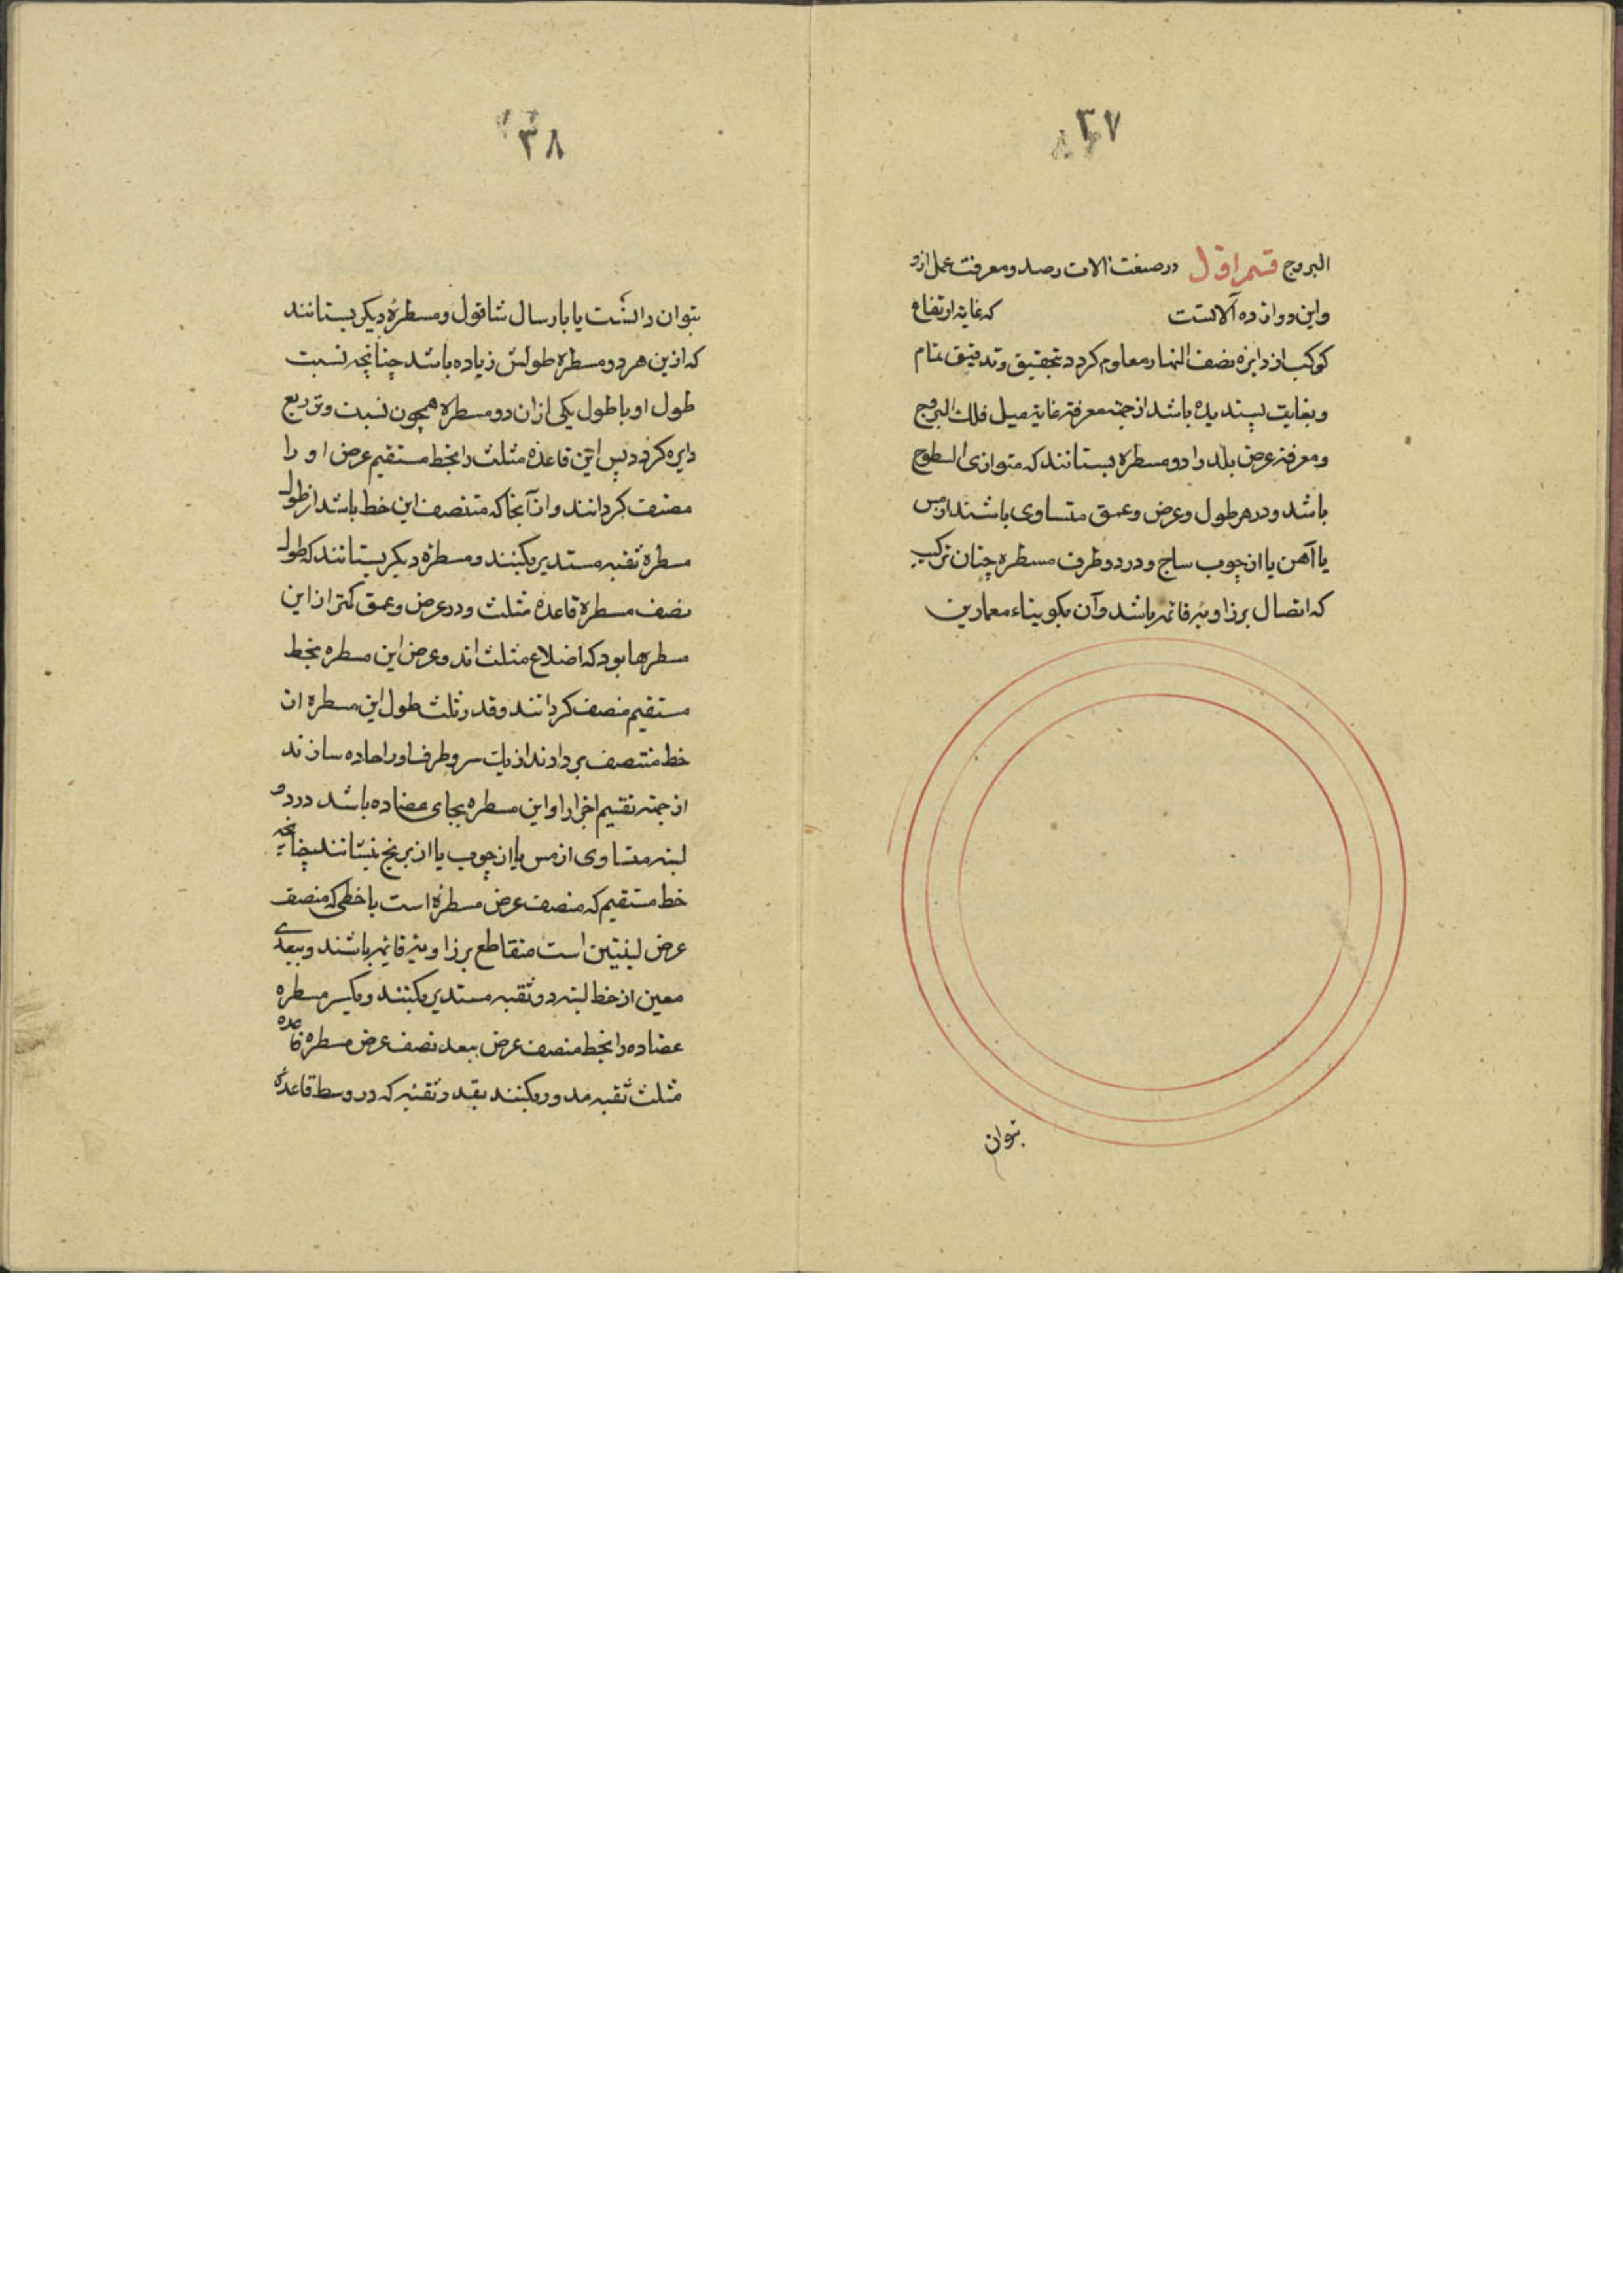 ۳۷
البروج قسم اول در صنعت آلات رصد و معرفت عمل ازو
و این دوازده آلاتست که غایة ارتفاع
کوکب از دایرۀ نصف النهار معلوم کردد بتحقیق و تدقیق تمام
و بغایت پسندیده باشد از جهة معرفة غایة میل فلك البروج
و معرفة عرض بلد را دو مسطره بستانند که متوازی السطوح
باشد و در هر طول و عرض و عمق متساوی باشند از مس
یا آهن یا از چوب ساج و در دو طرف مسطره چنان ترکیب
که اتصال بر زاویه قائمه باشد و آن بکویناء معمارین
بتوان
۳۸
بتوان دانست یا بارسال شاقول و مسطرۀ دیکر بستانند
که ازین هر دو مسطره طولش زیاده باشد چنانچه نسبت
طول او با طول یکی از ان دو مسطره همچون نسبت وتر ربع
دایره کردد پس این قاعدۀ مثلث را بخط مستقیم عرض او را
منصف کردانند و از آنجا که منتصف این خط باشد از طول
مسطره ثقبه مستدیر بکنند و مسطرۀ دیکر بستانند که طول
نصف مسطرۀ قاعدۀ مثلث و در عرض و عمق کمتر از این
مسطرها بود که اضلاع مثلث اند و عرض این مسطره بخط
مستقیم منصف کردانند و قدر ثلث طول این مسطره از
خط منتصف بردارند از یك سر و طرف او را حاده سازند
از جهة تقسیم اجزا را و این مسطره بجای عضاده باشد در دو
لبنه متساوی از مس یا از چوب یا از برنج بنشانند چنانچه
خط مستقیم که منصف عرض مسطره است با خطی که منصف
عرض لبنتین است متقاطع بر زاویه قائمه باشند و ببعدی
معین از خط لبنه دو ثقبه مستدیر بکنند و یکسر مسطره
عضاده را بخط منصف عرض ببعد نصف عرض مسطره قاعده
مثلث ثقبه مدور بکنند بقدر ثقبه که در وسط قاعدۀ